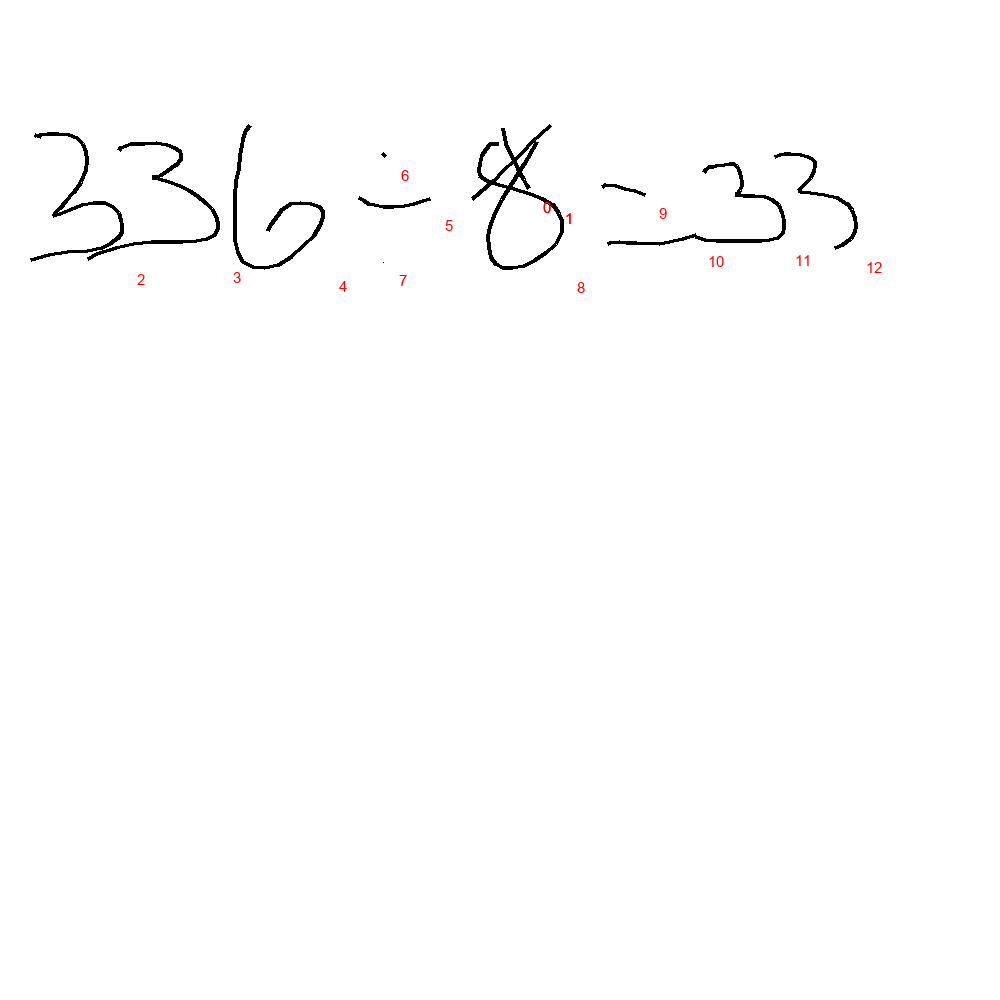 336 ÷ 8 = 33
2 3 4 5 6 7 0 1 8 9 10 11 12